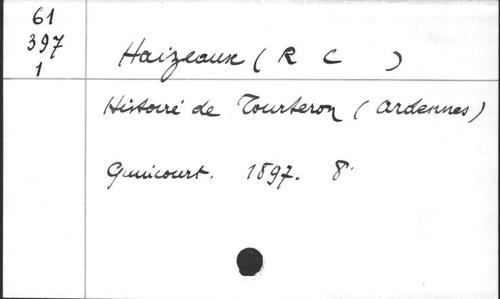 61
397
1
Haizeaux (R C )
Histoire de Tourteron (Ardennes)
Guincourt. 1897. 8°.